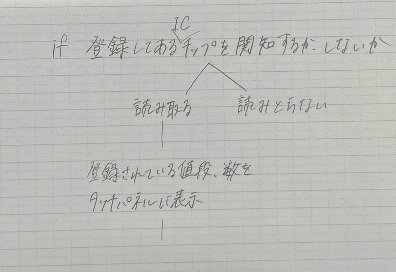 IC
if 登録してあるチップを関知するか、しないか
読み取る 読みとらない
登録されている値段、数を
タッチパネルに表示